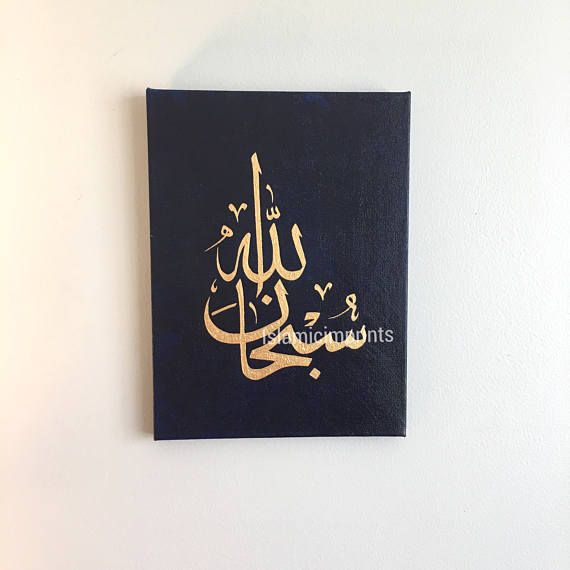 سُبْحَانَ
اللّٰه
Islamicimprints